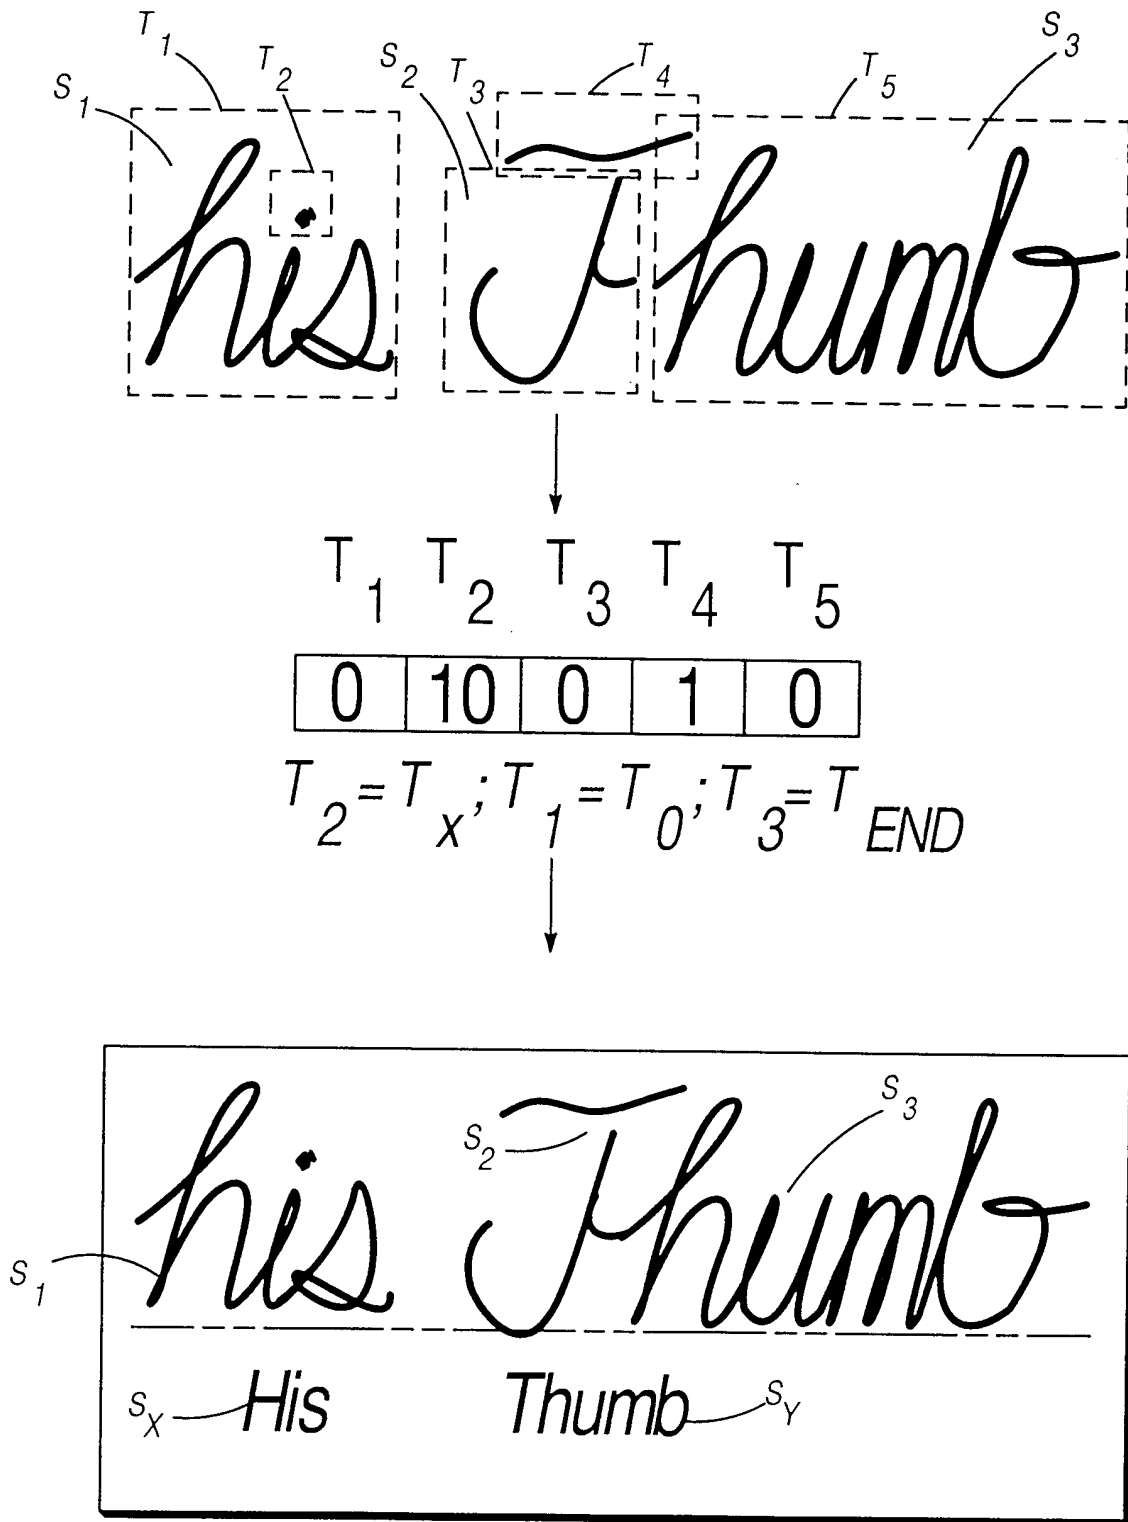 T1 T2 S2 T3 T4 T5 S3
S1
his Thumb
T1 T2 T3 T4 T5
0 10 0 1 0
T2 = TX ; T1 = T0 ; T3 = TEND
his Thumb
S2 S3
S1
SX His Thumb SY